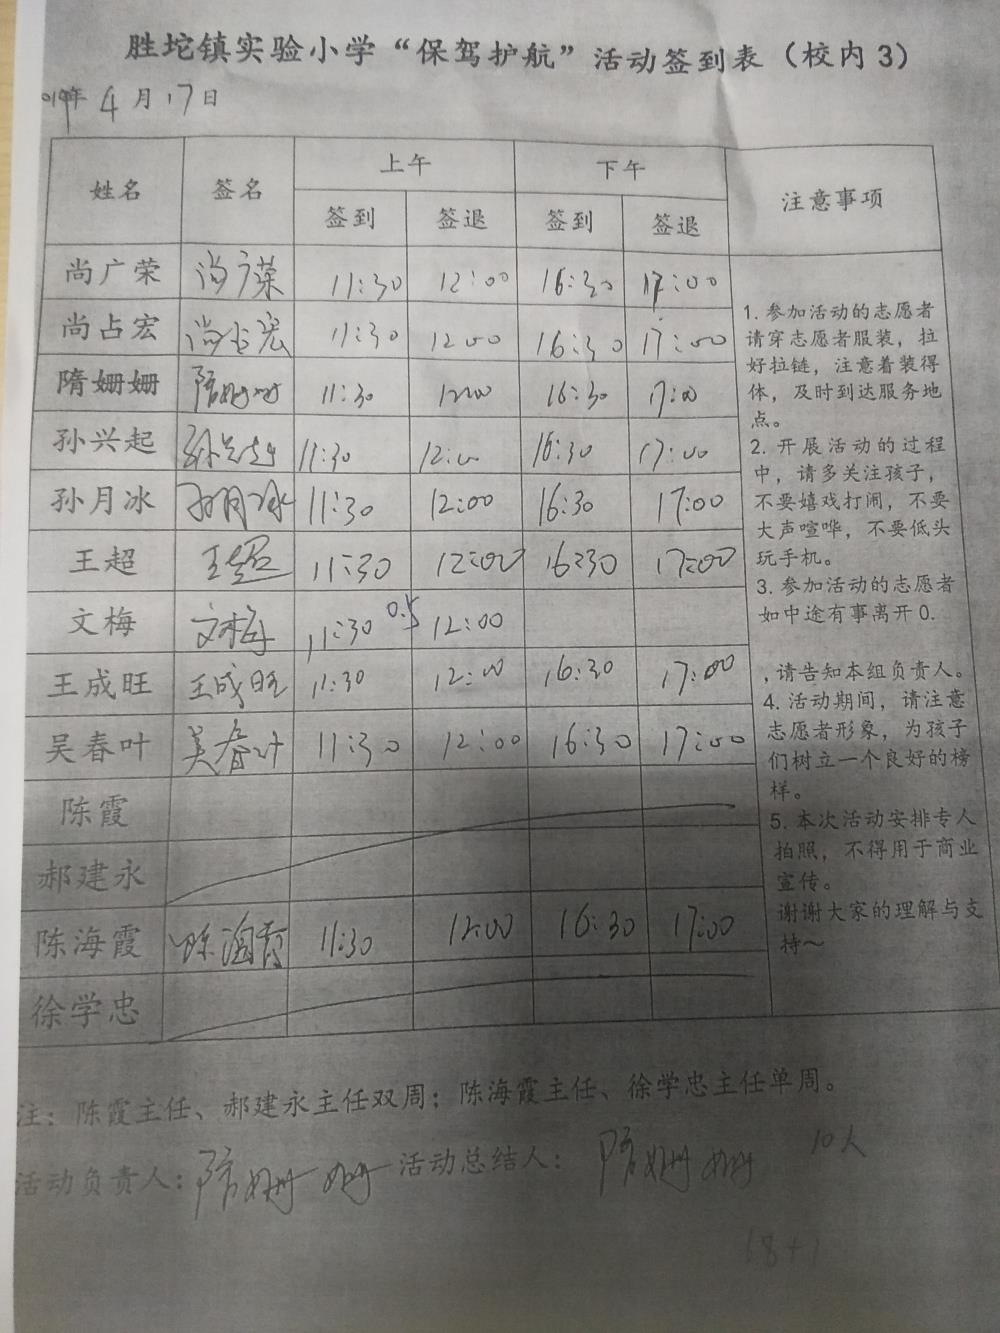 胜坨镇实验小学“保驾护航”活动签到表（校内3）
019年 4月17日
姓名 签名 上午 下午 注意事项
签到 签退 签到 签退
尚广荣 尚广荣 11:30 12:00 16:30 17:00
尚占宏 尚占宏 11:30 12:00 16:30 17:00
隋姗姗 隋姗姗 11:30 12:00 16:30 17:00
孙兴起 孙兴起 11:30 12:00 16:30 17:00
孙月冰 孙月冰 11:30 12:00 16:30 17:00
王超 王超 11:30 12:00 16:30 17:00
文梅 文梅 11:30 0.5 12:00
王成旺 王成旺 11:30 12:00 16:30 17:00
吴春叶 吴春叶 11:30 12:00 16:30 17:00
陈霞
郝建永
陈海霞 陈海霞 11:30 12:00 16:30 17:00
徐学忠
1. 参加活动的志愿者
请穿志愿者服装，拉
好拉链，注意着装得
体，及时到达服务地
点。
2. 开展活动的过程
中，请多关注孩子，
不要嬉戏打闹，不要
大声喧哗，不要低头
玩手机。
3. 参加活动的志愿者
如中途有事离开0.
，请告知本组负责人。
4. 活动期间，请注意
志愿者形象，为孩子
们树立一个良好的榜
样。
5. 本次活动安排专人
拍照，不得用于商业
宣传。
谢谢大家的理解与支
持～
注：陈霞主任、郝建永主任双周；陈海霞主任、徐学忠主任单周。
活动负责人：隋姗姗 活动总结人：隋姗姗 10人
18+1